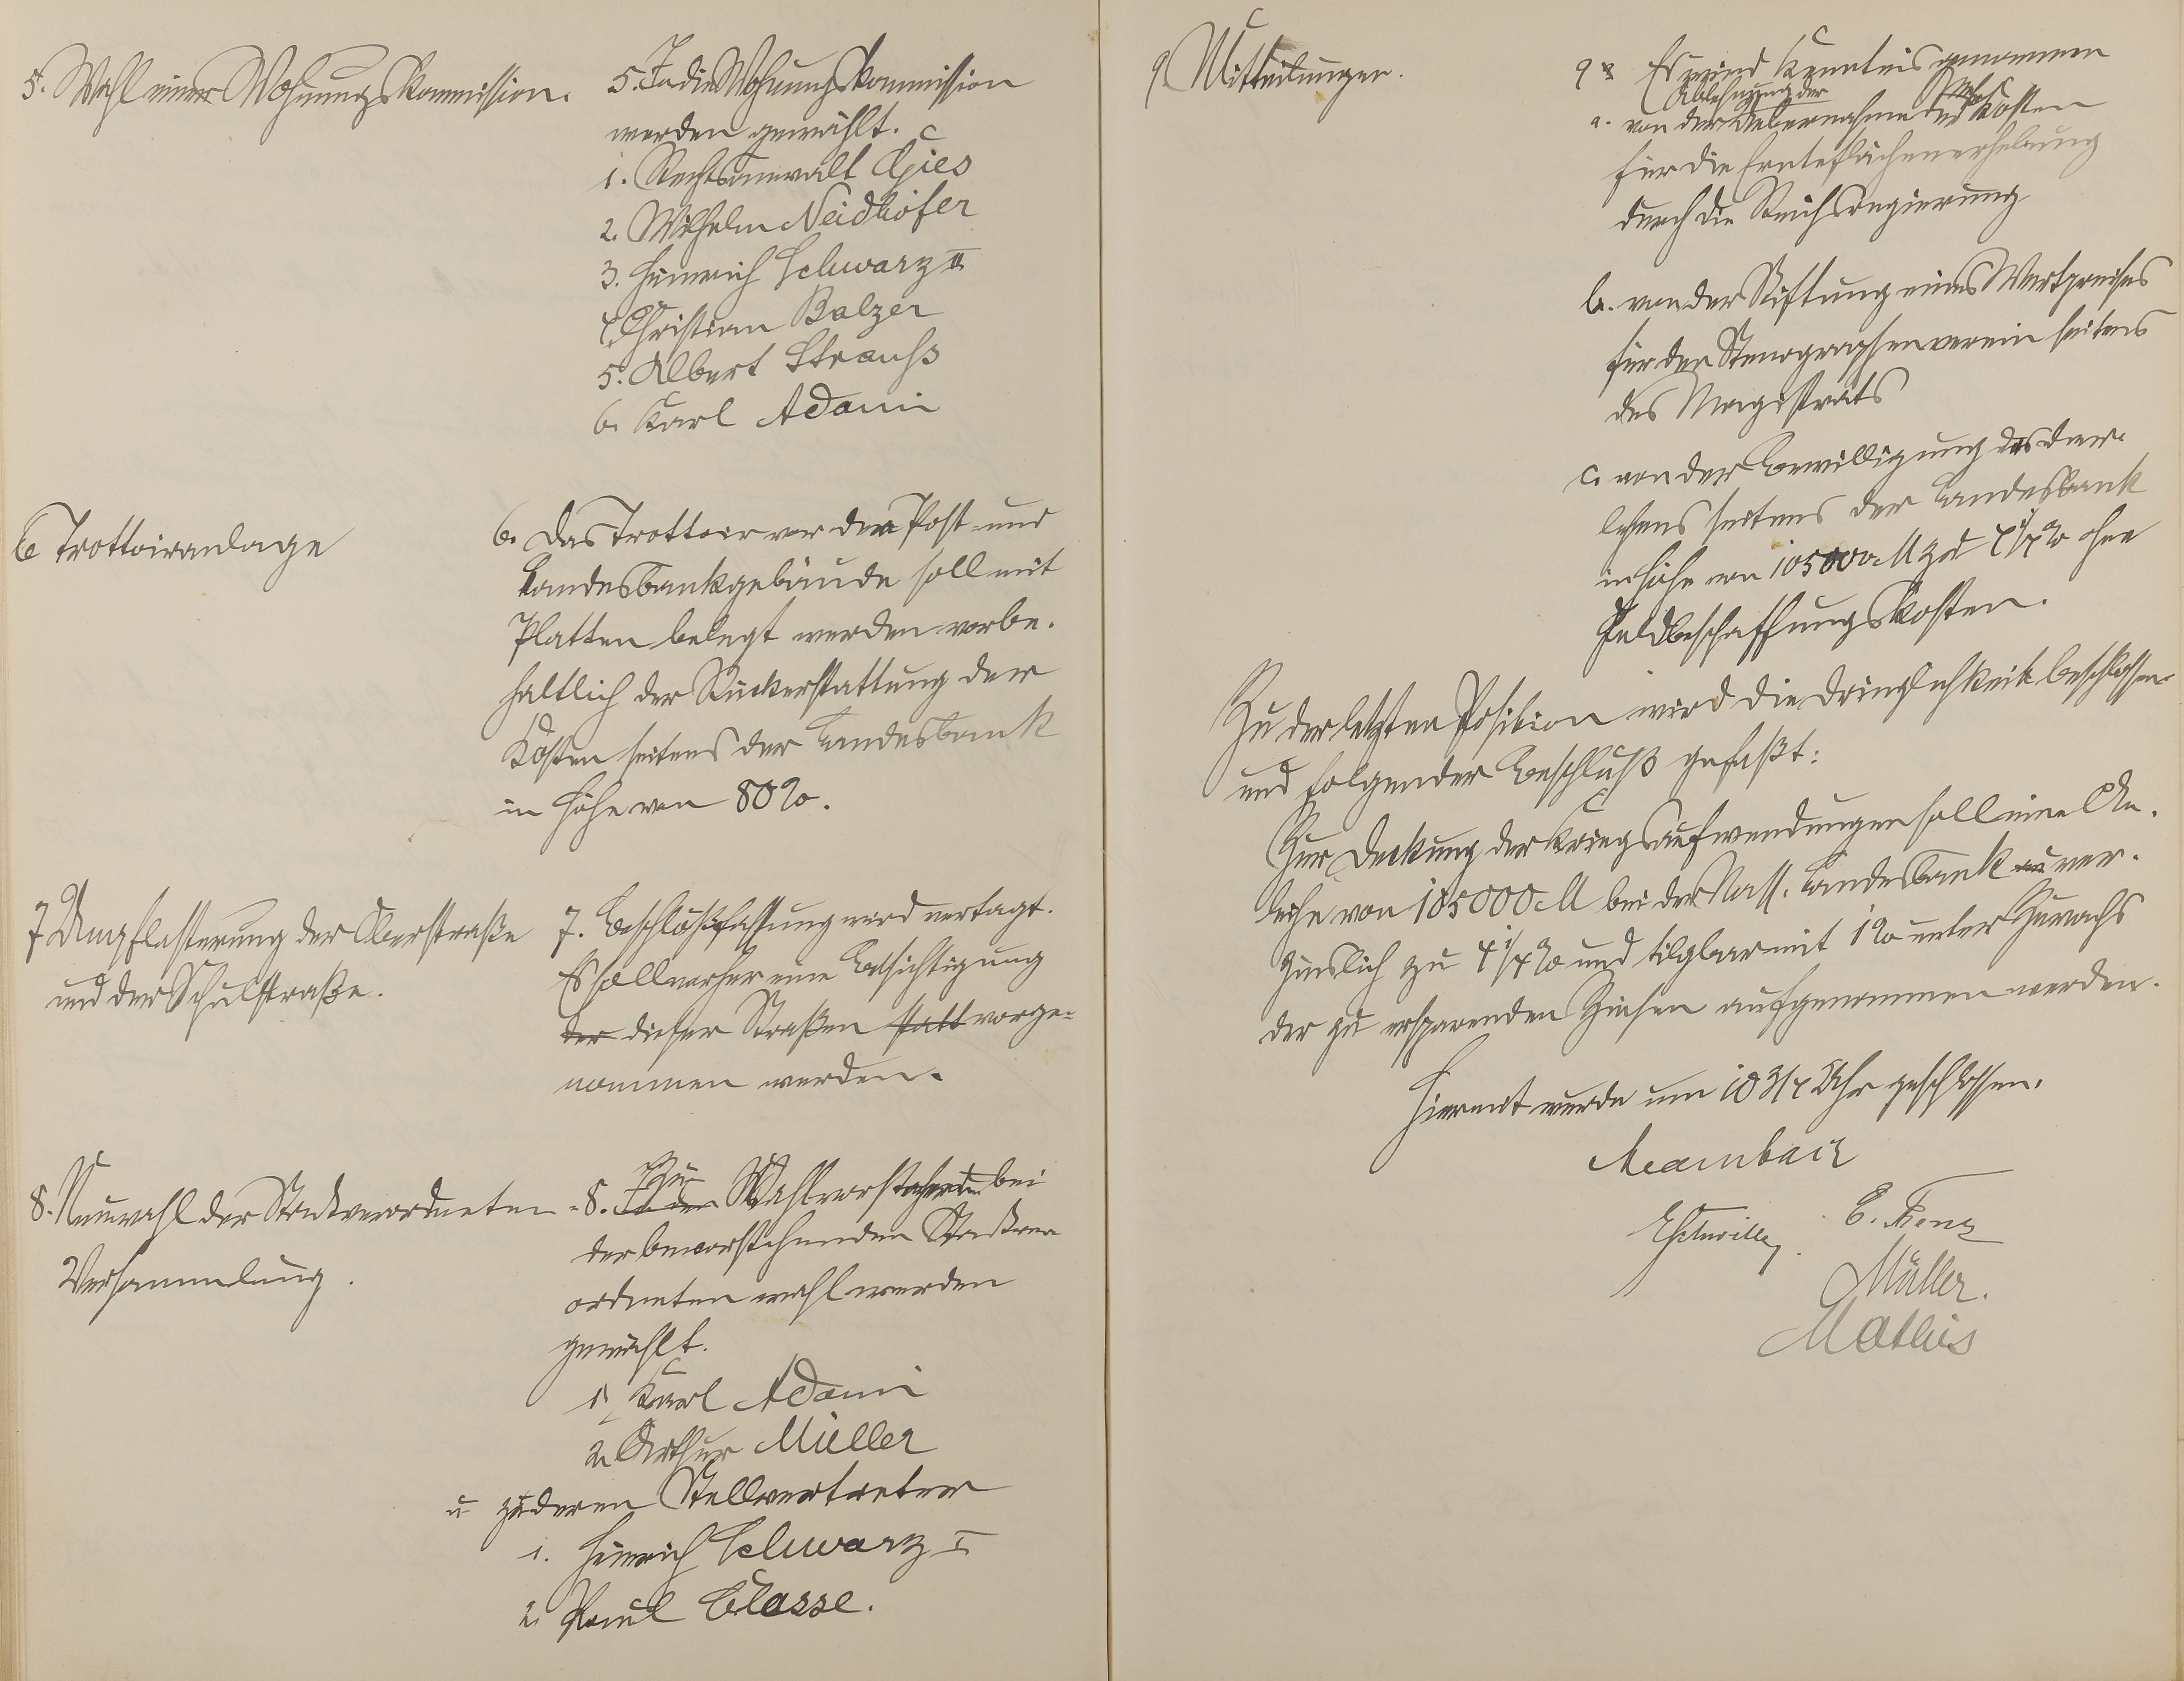 5. Wahl einer Wohnungskommission.
5. In die Wohnungskommission
werden gewählt.
1. Rechtsanwalt Gies
2. Wilhelm Neidhöfer
3. Heinrich Schwarz II
4. Christian Balzer
5. Albert Strauß
6. Karl Adami
6 Trottoiranlage
6. Das Trottoir vor dem Post- und
Landesbankgebäude soll mit
Platten belegt werden vorbe-
haltlich der Rückerstattung der
Kosten seitens der Landesbank
in Höhe von 80%.
7 Umpflasterung der Oberstraße
und der Schulstraße.
7. Beschlußfassung wird vertagt.
Es soll vorher eine Besichtigung
der dieser Straßen statt vorge-
nommen werden.
8. Neuwahl der Stadtverordneten-
Versammlung.
8. Zu Wahlvorstehern bei
der bevorstehenden Stadtver
ordnetenwahl werden
gewählt.
1. Karl Adami
2. Arthur Müller
u zu deren Stellvertreter
1. Heinrich Schwarz I
2. Paul Classe.
9. Mitteilungen.
9 Es wird Kenntnis genommen
Ablehnung der
a. von der Uebernahme der Kosten
für die Ernteflächenerhebung
durch die Reichsregierung
b. von der Stiftung eines Wertpreises
für den Stenographenverein seitens
des Magistrats
c. von der Bewilligung des Dar-
lehens seitens der Landesbank
in Höhe von 105000 M zu 4 1/4 % ohne
Geldbeschaffungskosten.
Zu der letzten Position wird die Dringlichkeit beschlossen
und folgender Beschluß gefaßt:
Zur Deckung der Kriegsaufwendungen soll eine An-
leihe von 105000 M bei der Nass. Landesbank ver-
zinslich zu 4 1/4 % und tilgbar mit 1% unter Zuwachs
der zu ersparenden Zinsen aufgenommen werden.
Hiermit wurde um 10 3/4 Uhr geschlossen.
E.
Müller.
Mathis